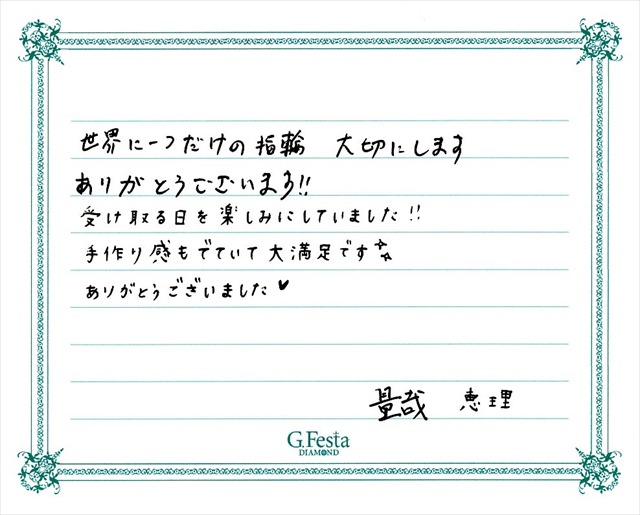 世界に一つだけの指輪 大切にします
ありがとうございます!!
受け取る日を楽しみにしていました!!
手作り感もでていて大満足です
ありがとうございました♥
量哉 恵理
G.Festa
DIAMOND